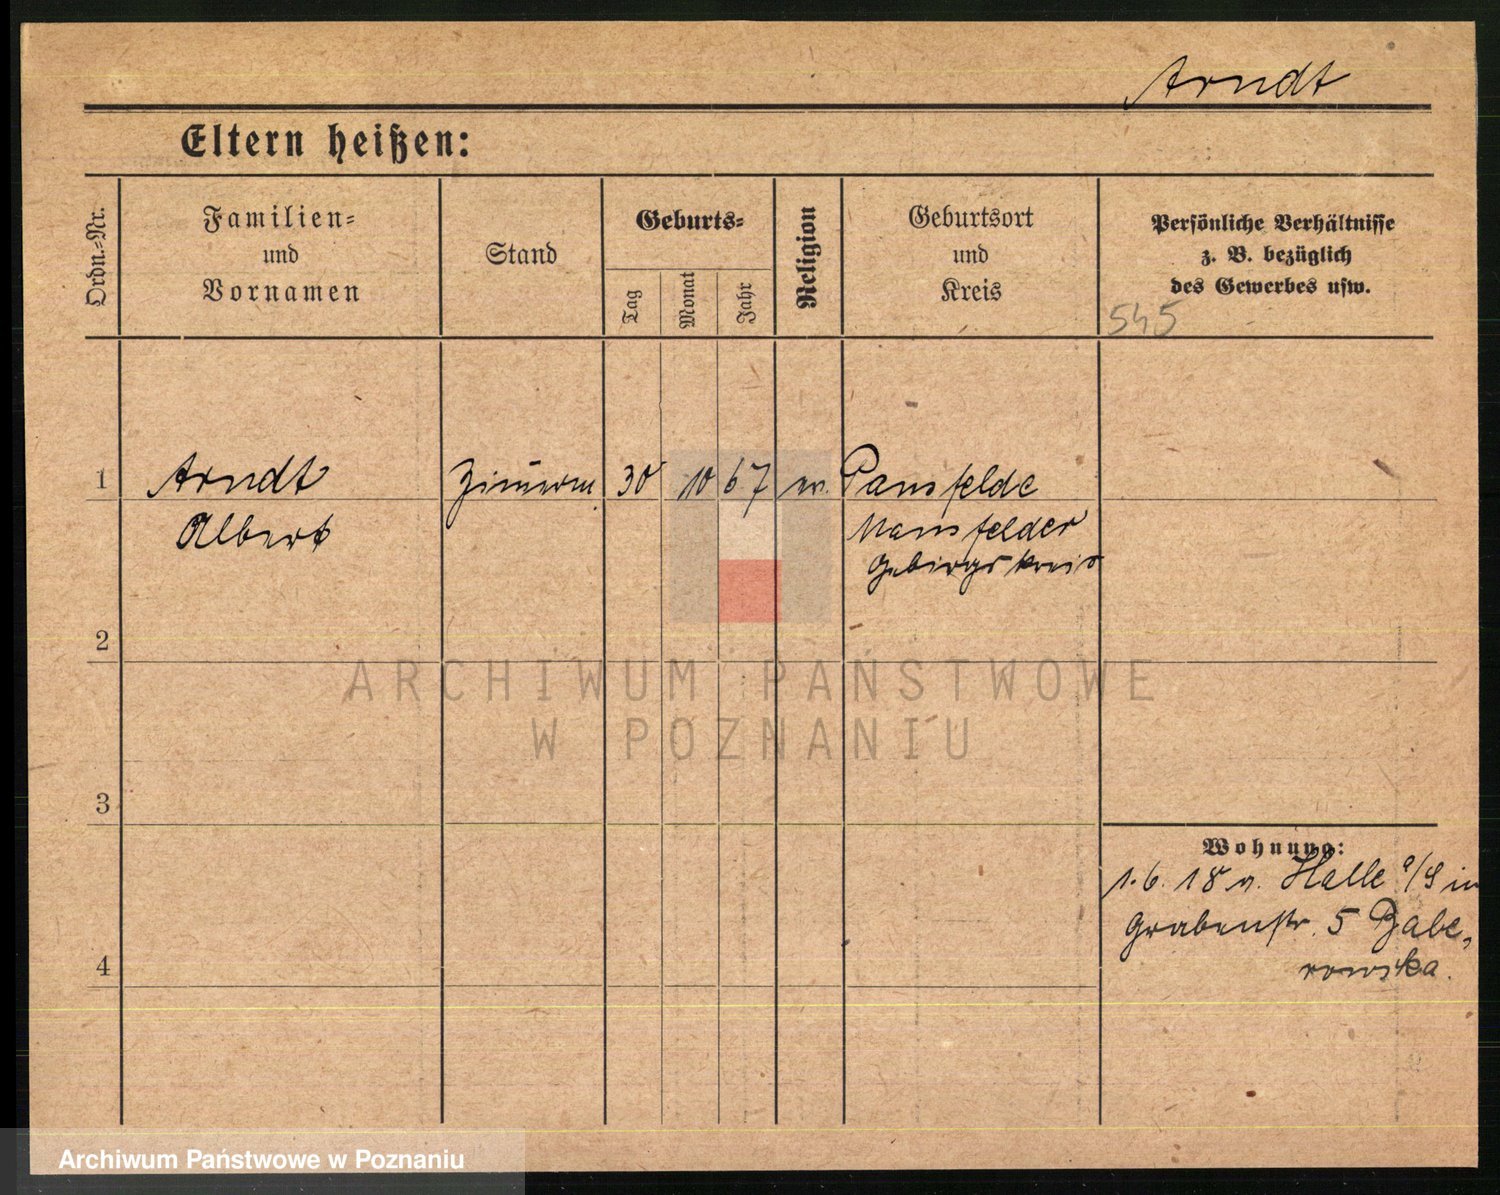 Arndt
Eltern heißen:
Ordn.-Nr.
Familien-
und
Vornamen
Stand
Geburts-
Tag
Monat
Jahr
Religion
Geburtsort
und
Kreis
Persönliche Verhältnisse
z. B. bezüglich
des Gewerbes usw.
545
1
Arndt
Zimerm.
30
10
67
ev.
Pansfelde
Albert
Mansfelder
Gebirgskreis
2
ARCHIWUM PAŃSTWOWE
W POZNANIU
3
Wohnung:
1.6.18 v. Halle a/S in
Grabenstr. 5
rowska.
4
Archiwum Państwowe w Poznaniu